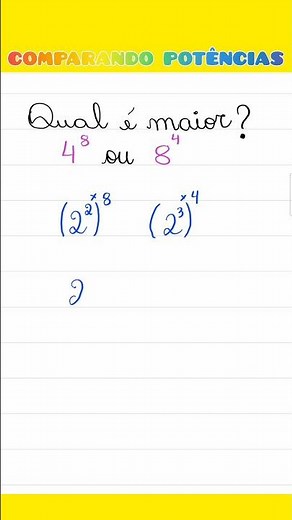 COMPARANDO POTÊNCIAS
Qual é maior?
4⁸ ou 8⁴
(2²)ˣ⁸ (2³)ˣ⁴
2